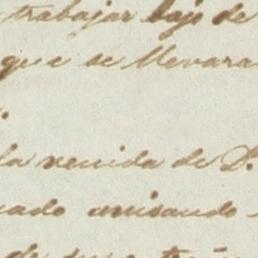 trabajar bajo de
que se llevara
la venida de D.
avisando